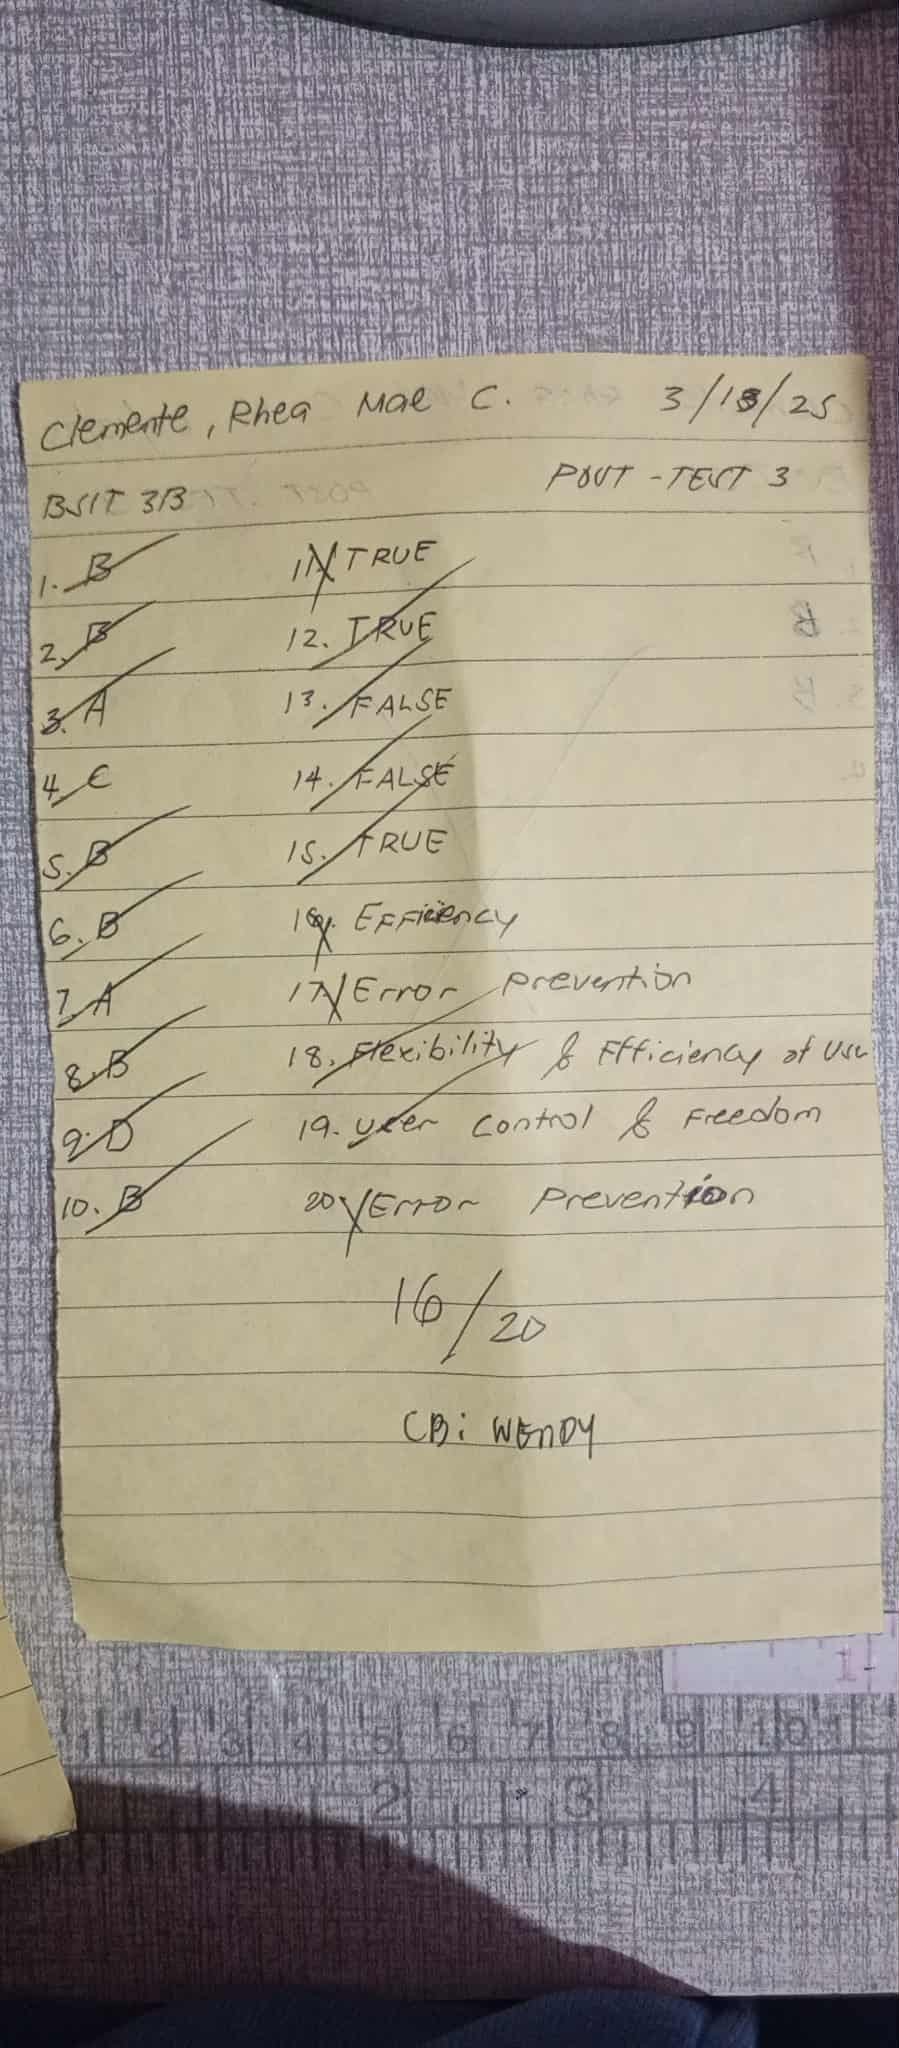 Clemente, Rhea Mae C. 3/13/25
BSIT 3B POST-TEST 3
1. B
2. B
3. A
4. C
5. B
6. B
7. A
8. B
9. D
10. B
11. TRUE
12. TRUE
13. FALSE
14. FALSE
15. TRUE
16. Efficiency
17. Error prevention
18. Flexibility & Efficiency of Use
19. User control & Freedom
20. Error Prevention
16/20
CB: WENDY
1 2 3 4 5 6 7 8 9 10
2 3 4